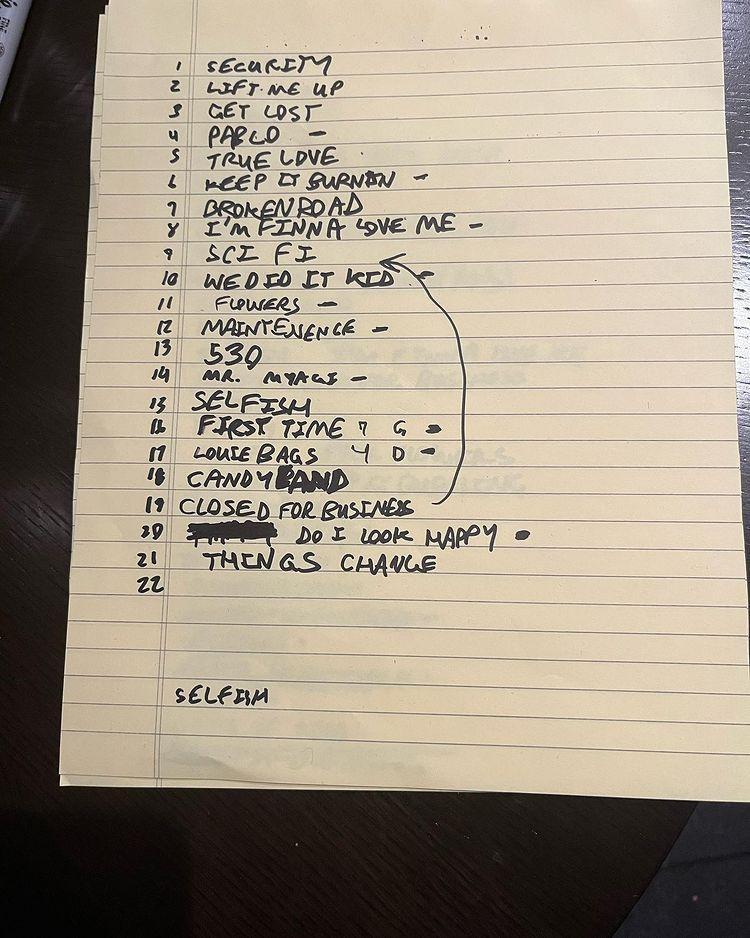 1 SECURITY
2 LIFT ME UP
3 GET LOST
4 PABLO -
5 TRUE LOVE
6 KEEP IT BURNIN -
7 BROKEN ROAD
8 I'M FINNA LOVE ME -
9 SCI FI
10 WE DID IT KID -
11 FLOWERS -
12 MAINTENENCE -
13 530
14 MR. MYAGI -
15 SELFISH
16 FIRST TIME 7 G -
17 LOUIE BAGS 4 D -
18 CANDYLAND
19 CLOSED FOR BUSINESS
20 DO I LOOK HAPPY
21 THINGS CHANGE
22
SELFISH